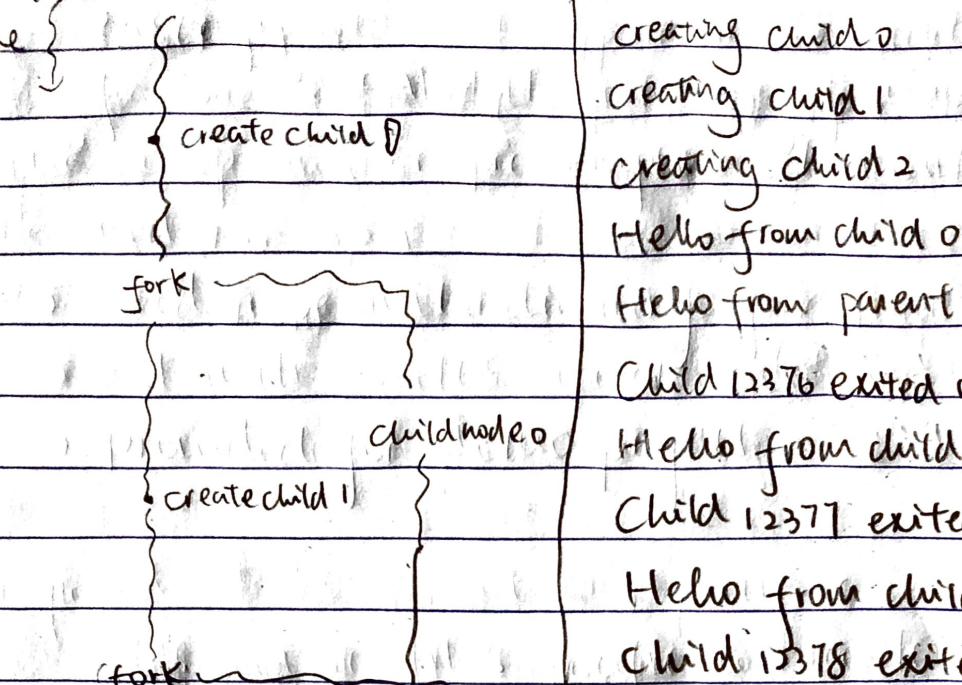 create child 0
fork
child node 0
create child 1
fork
creating child 0
creating child 1
creating child 2
Hello from child 0
Hello from parent
Child 12376 exited
Hello from child
Child 12377 exite
Hello from chil
Child 12378 exite